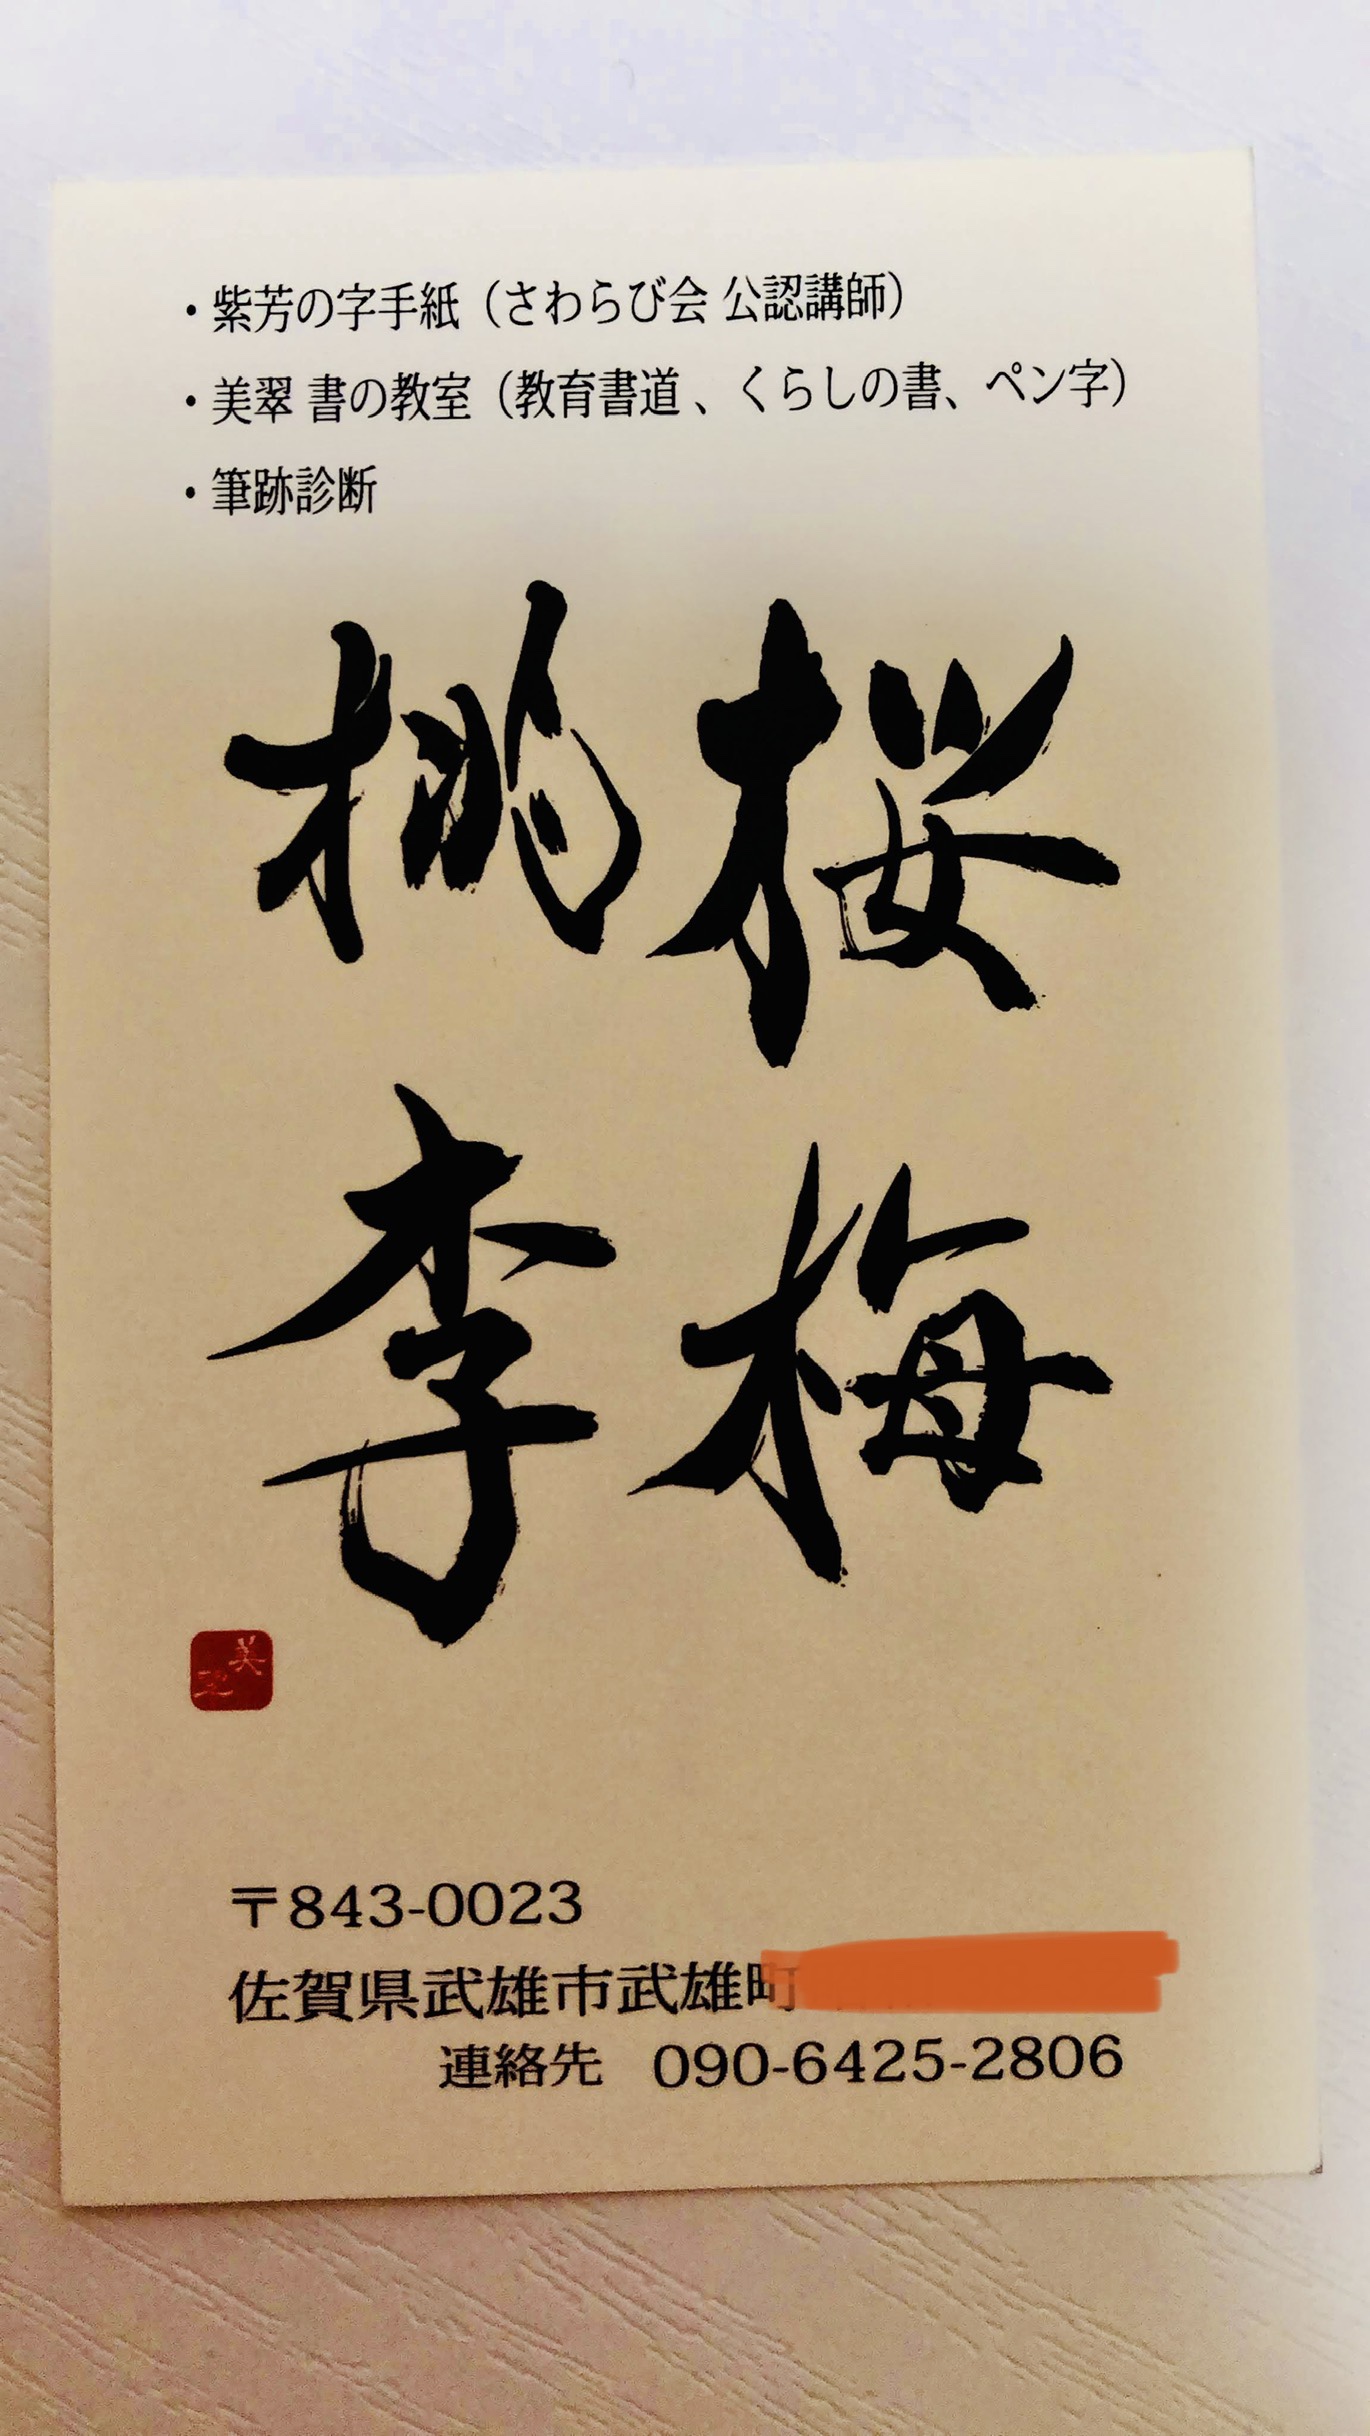 ・紫芳の字手紙（さわらび会 公認講師）
・美翠 書の教室（教育書道、くらしの書、ペン字）
・筆跡診断
桜梅
桃李
美翠
〒843-0023
佐賀県武雄市武雄町
連絡先 090-6425-2806